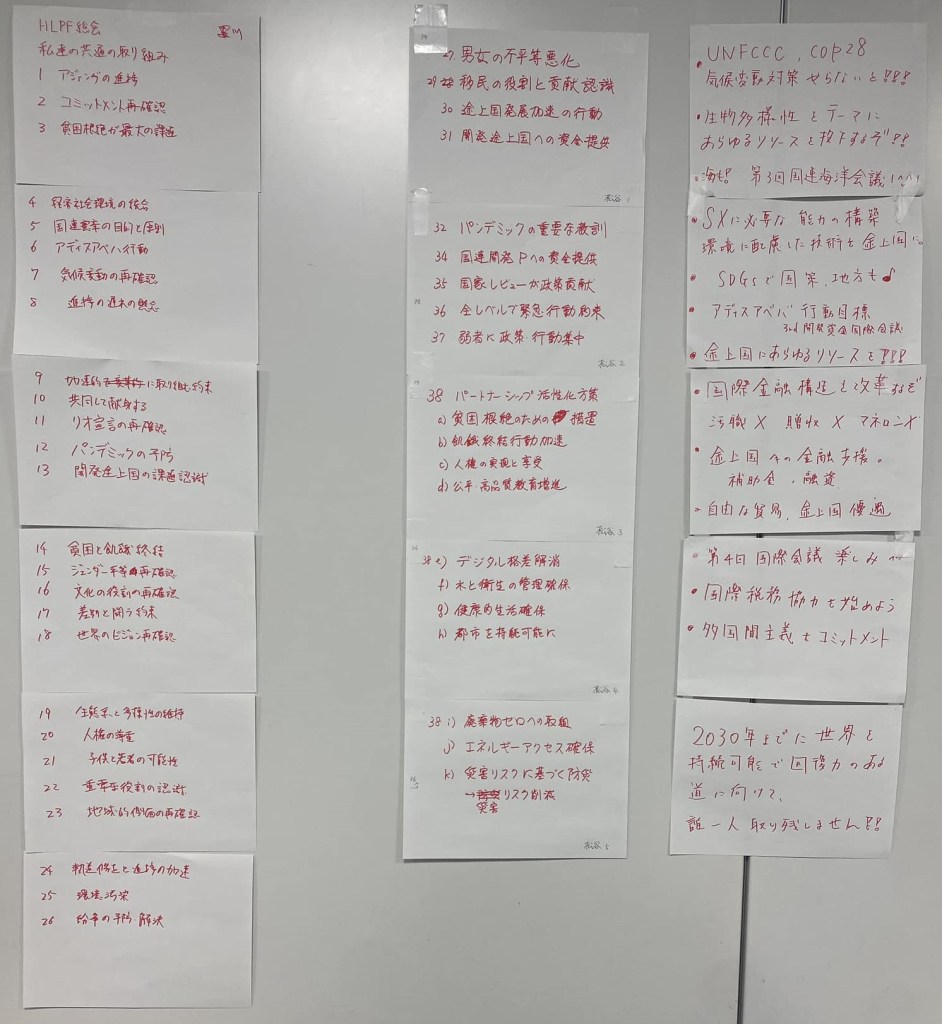 HLPF総会 星川
私達の共通の取り組み
1 アジェンダの進捗
2 コミットメント再確認
3 貧困根絶が最大の課題
4 経済社会環境の統合
5 国連憲章の目的と原則
6 アディスアベバ行動
7 気候変動の再確認
8 進捗の遅れの懸念
9 加速的 に取り組む約束
10 共同して献身する
11 リオ宣言の再確認
12 パンデミックの予防
13 開発途上国の課題認識
14 貧困と飢餓終結
15 ジェンダー平等再確認
16 文化の役割の再確認
17 差別と闘う約束
18 世界のビジョン再確認
19 生態系と多様性の維持
20 人権の尊重
21 子供と若者の可能性
22 重要な役割の認識
23 地域的側面の再確認
24 軌道修正と進捗の加速
25 環境汚染
26 紛争の予防・解決
27 男女の不平等悪化
29 移民の役割と貢献認識
30 途上国発展加速の行動
31 開発途上国への資金提供
1
32 パンデミックの重要な教訓
34 国連開発Pへの資金提供
35 国家レビューが政策貢献
36 全レベルで緊急行動約束
37 弱者に政策・行動集中
2
38 パートナーシップ活性化方策
a) 貧困根絶のための 措置
b) 飢餓終結行動加速
c) 人権の実現と享受
d) 公平・高品質教育増進
3
38 e) デジタル格差解消
f) 水と衛生の管理確保
g) 健康的生活確保
h) 都市を持続可能に
4
38 i) 廃棄物ゼロへの取組
j) エネルギーアクセス確保
k) 災害リスクに基づく防災
→ リスク削減
災害
5
UNFCCC, COP28
・気候変動対策やらないと!!!
・生物多様性をテーマに
あらゆるリソースを投下するぞ!!
・海も! 第3回国連海洋会議!
・SXに必要な能力の構築
環境に配慮した技術を途上国に。
・SDGsで国策、地方も♪
・アディスアベバ行動目標
3rd 開発資金国際会議
・途上国にあらゆるリソースを!!!
・国際金融構造を改革するぞ
汚職X 贈収X マネロンX
・途上国への金融支援。
補助金、融資
・自由な貿易、途上国優遇
・第4回国際会議 楽しみ〜
・国際税務協力を始めよう
・多国間主義もコミットメント
2030年までに世界を
持続可能で回復力のある
道に向けて、
誰一人取り残しません!!